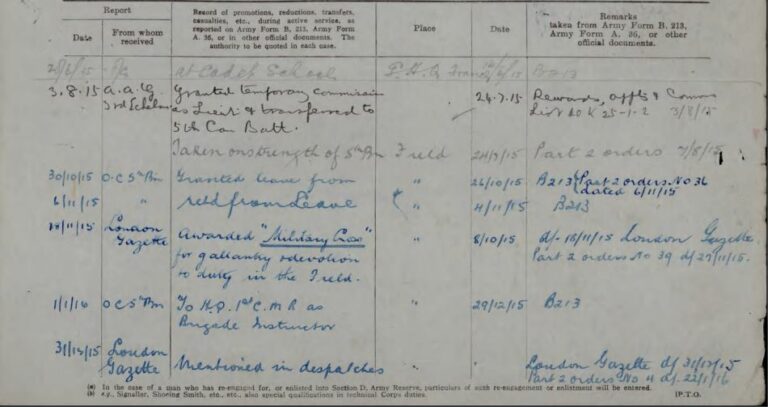 Report
Date
From whom received
Record of promotions, reductions, transfers,
casualties, etc., during active service, as
reported on Army Form B. 213, Army Form
A. 36, or in other official documents. The
authority to be quoted in each case.
Place
Date
Remarks
taken from Army Form B. 213,
Army Form A. 36, or other
official documents.
at Cadet School
G.H.Q. France
B213
3.8.15 A.A.G. Granted temporary commission 24.7.15 Rewards, appts & Comms
3rd Echelon as Lieut & transferred to List No K 25-1-2 3/8/15
5th Can Batt.
Taken on strength of 5th Bn Field 24/7/15 Part 2 orders 7/8/15
30/10/15 O.C 5th Bn Granted leave from " 26/10/15 B213 Part 2 orders No 36
dated 6/11/15
6/11/15 " retd from Leave " 4/11/15 B213
/11/15 London Awarded "Military Cross" " 8/10/15 d/- 18/11/15 London Gazette
Gazette for gallantry & devotion Part 2 orders No 39 d/ 27/11/15.
to duty in the Field.
1/1/16 O C 5th Bn To H.Q. 1st C.M.R as " 29/12/15 B213
Brigade Instructor
31/12/15 London
Gazette Mentioned in despatches " " London Gazette d/ 31/12/15
Part 2 orders No 4 d/- 22/1/16
(a) In the case of a man who has re-engaged for, or enlisted into Section D, Army Reserve, particulars of such re-engagement or enlistment will be entered.
(b) e.g., Signaller, Shoeing Smith, etc., etc., also special qualifications in technical Corps duties.
[P.T.O.